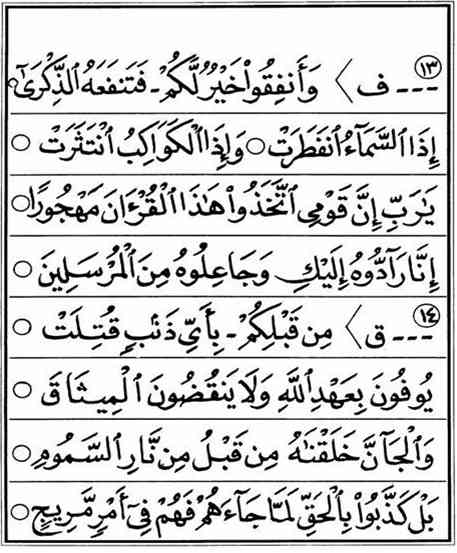 ١٣ --- ف > وَأَنفِقُوا۟ خَيْرٌ لَّكُمْ - فَتَنفَعَهُ ٱلذِّكْرَىٰٓ
إِذَا ٱلسَّمَآءُ ٱنفَطَرَتْ ○ وَإِذَا ٱلْكَوَاكِبُ ٱنْتَثَرَتْ ○
يَٰرَبِّ إِنَّ قَوْمِى ٱتَّخَذُوا۟ هَٰذَا ٱلْقُرْءَانَ مَهْجُورًا ○
إِنَّا رَآدُّوهُ إِلَيْكِ وَجَاعِلُوهُ مِنَ ٱلْمُرْسَلِينَ ○
١٤ --- ق > مِن قَبْلِكُمْ - بِأَىِّ ذَنۢبٍ قُتِلَتْ ○
يُوفُونَ بِعَهْدِ ٱللَّهِ وَلَا يَنقُضُونَ ٱلْمِيثَاقَ ○
وَٱلْجَآنَّ خَلَقْنَٰهُ مِن قَبْلُ مِن نَّارِ ٱلسَّمُومِ ○
بَلْ كَذَّبُوا۟ بِٱلْحَقِّ لَمَّا جَآءَهُمْ فَهُمْ فِىٓ أَمْرٍ مَّرِيجٍ ○